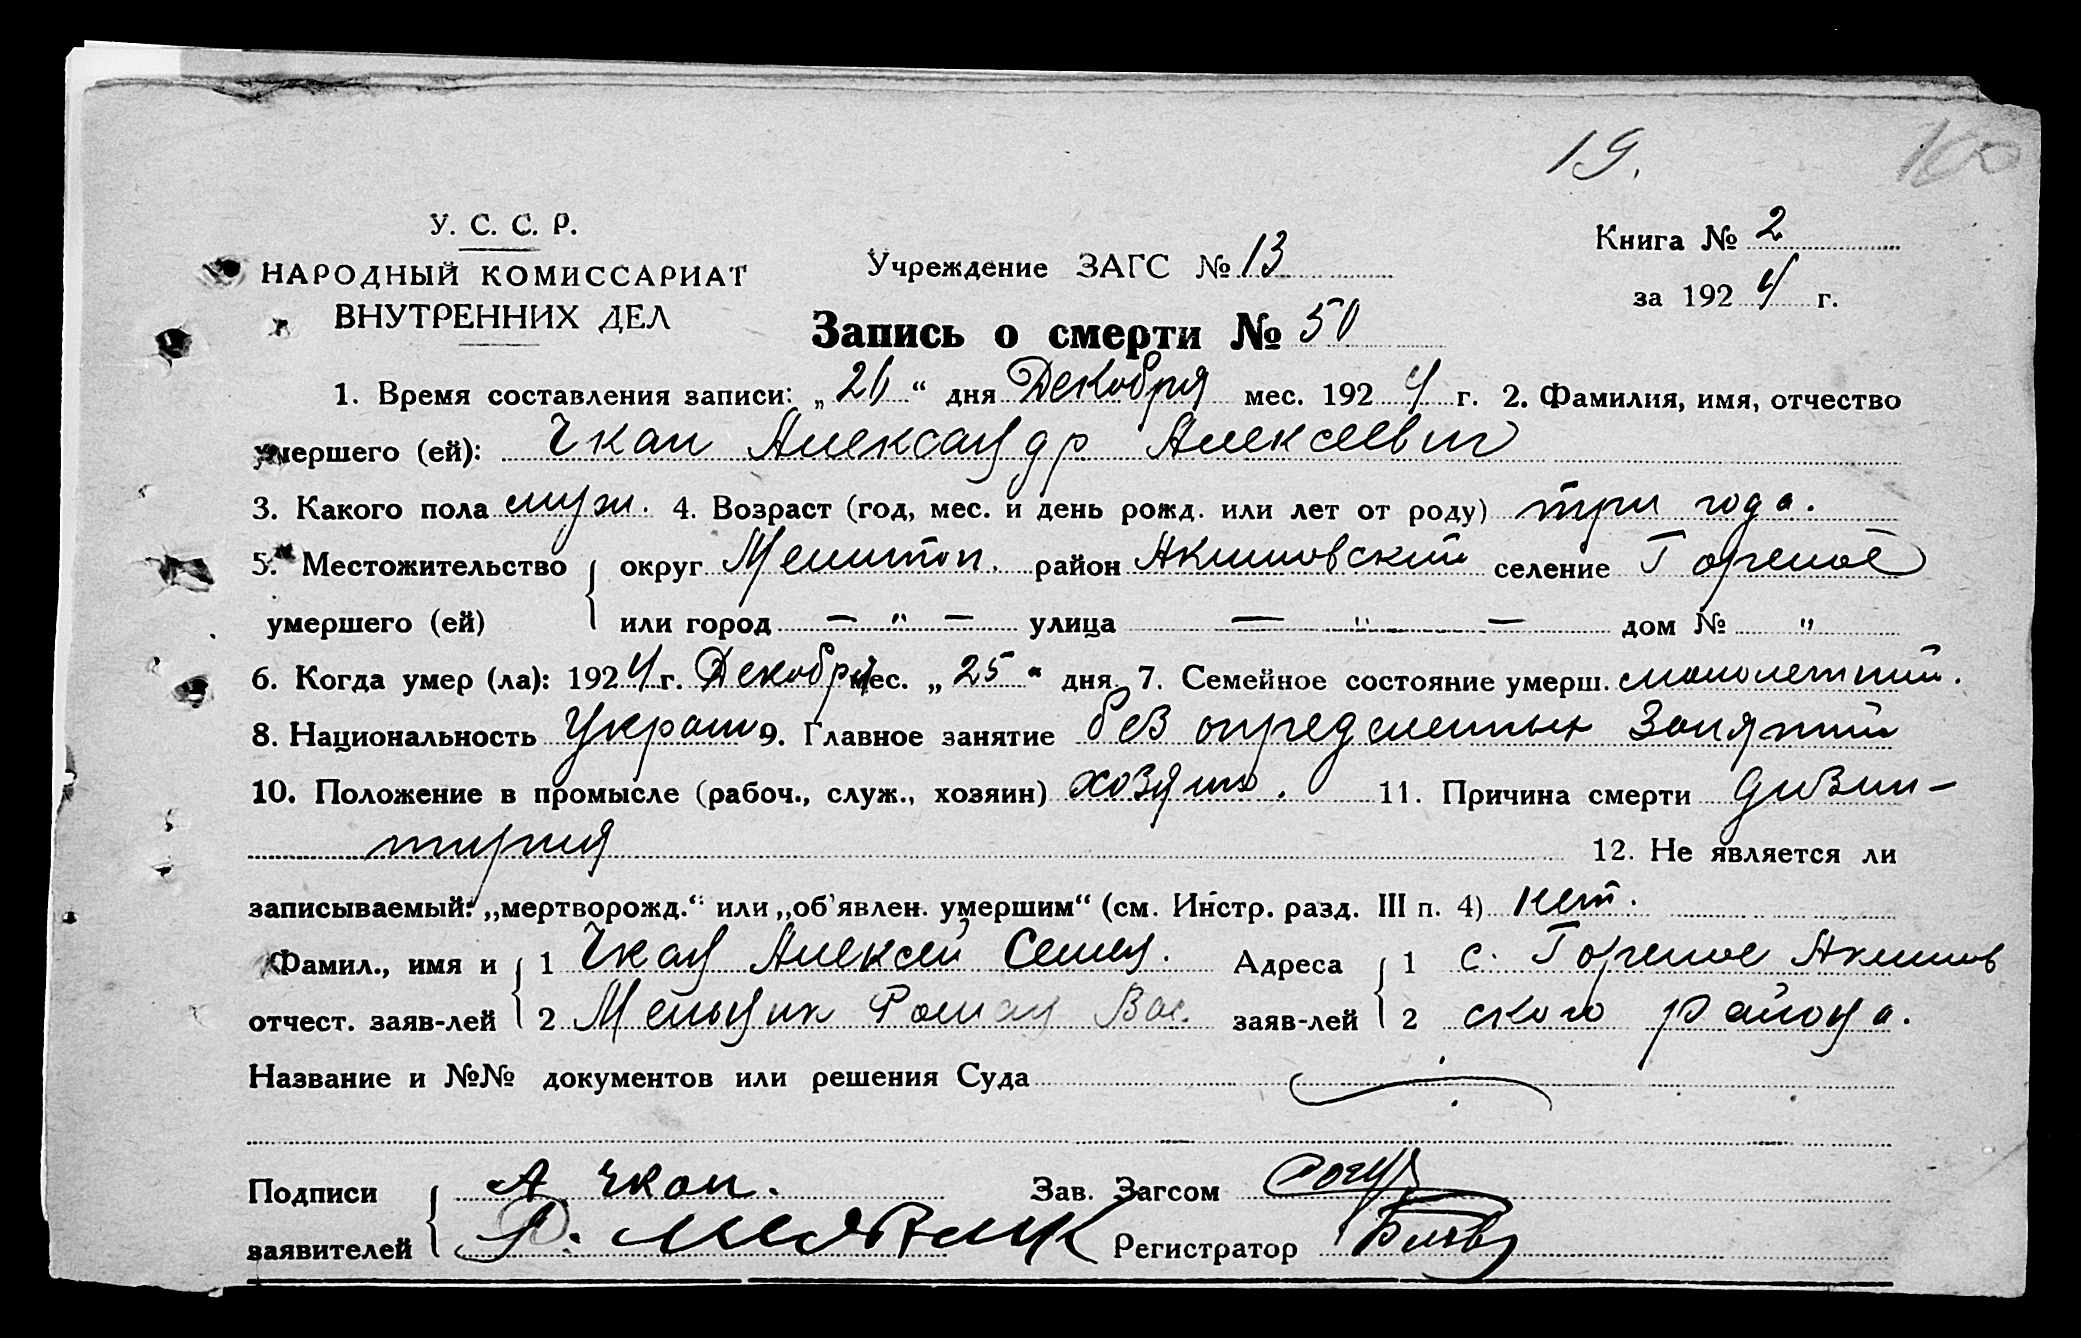 19.
100
У. С. С. Р.
НАРОДНЫЙ КОМИССАРИАТ
ВНУТРЕННИХ ДЕЛ
Учреждение ЗАГС № 13
Книга № 2
за 1924 г.
Запись о смерти № 50
1. Время составления записи: „26“ дня Декабря мес. 1924 г. 2. Фамилия, имя, отчество
умершего (ей): Чкан Александр Алексеевич
3. Какого пола муж. 4. Возраст (год, мес. и день рожд. или лет от роду) три года.
5. Местожительство округ Мелитоп. район Акимовский селение Горелое
умершего (ей) или город — " — улица — " — дом № "
6. Когда умер (ла): 1924 г. Декабря мес. „25“ дня 7. Семейное состояние умерш. малолетний.
8. Национальность Украин 9. Главное занятие без определенных занятий
10. Положение в промысле (рабоч., служ., хозяин) хозяин. 11. Причина смерти дизин-
тирия 12. Не является ли
записываемый: „мертворожд.“ или „об'явлен. умершим“ (см. Инстр. разд. III п. 4) нет.
Фамил., имя и 1 Чкан Алексей Семен. Адреса 1 с. Горелое Акимов
отчест. заяв-лей 2 Мельник Роман Вас. заяв-лей 2 ского района.
Название и №№ документов или решения Суда
Подписи А Чкан. Зав. Загсом
заявителей Р. Мельник Регистратор